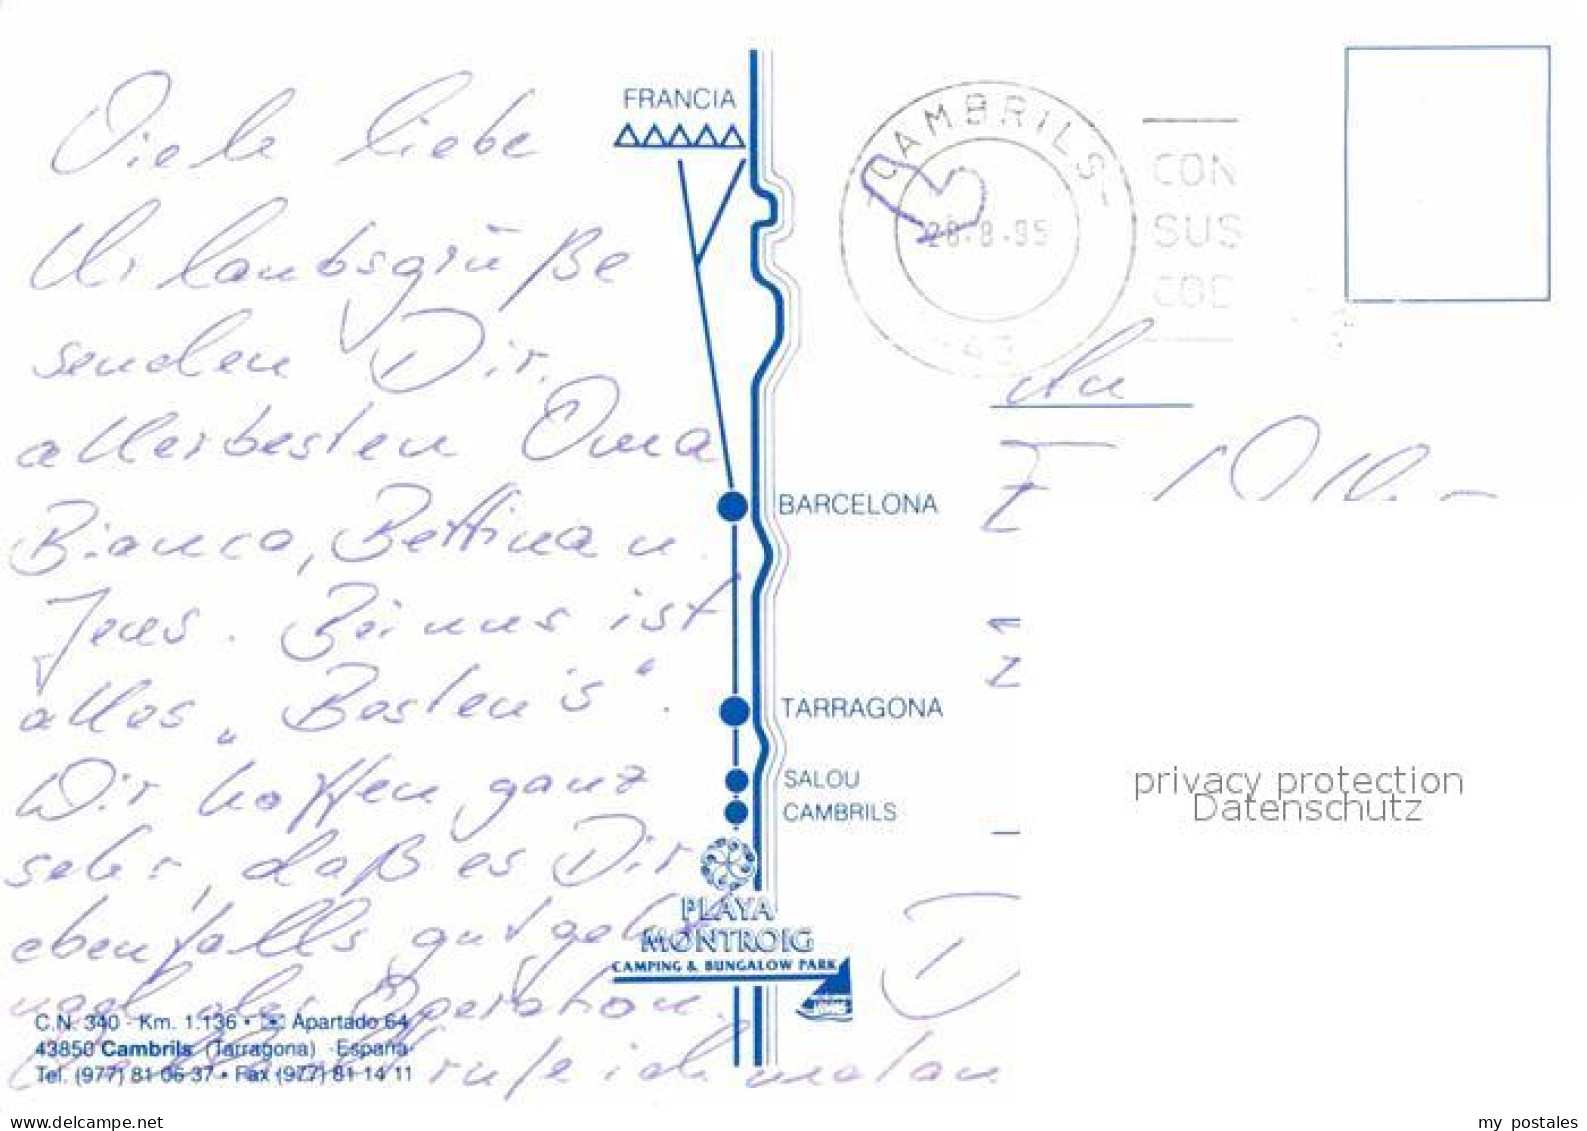 Viele liebe
Urlaubsgrüße
senden Dir,
allerbesten Oma
Bianca, Bettina u.
Jens. Bei uns ist
alles „Bestens“.
Wir hoffen ganz
sehr, daß es Dir
ebenfalls gut geht
nach der Operation.
rufe ich mal an
C.N. 340 - Km. 1.136 • Apartado 64
43850 Cambrils (Tarragona) -España-
Tel. (977) 81 06 37 • Fax (977) 81 14 11
FRANCIA
BARCELONA
TARRAGONA
SALOU
CAMBRILS
PLAYA
MONTROIG
CAMPING & BUNGALOW PARK
CAMBRILS
28-8-95
43
CON
SUS
COD
An
D
privacy protection
Datenschutz
www.delcampe.net
my_postales